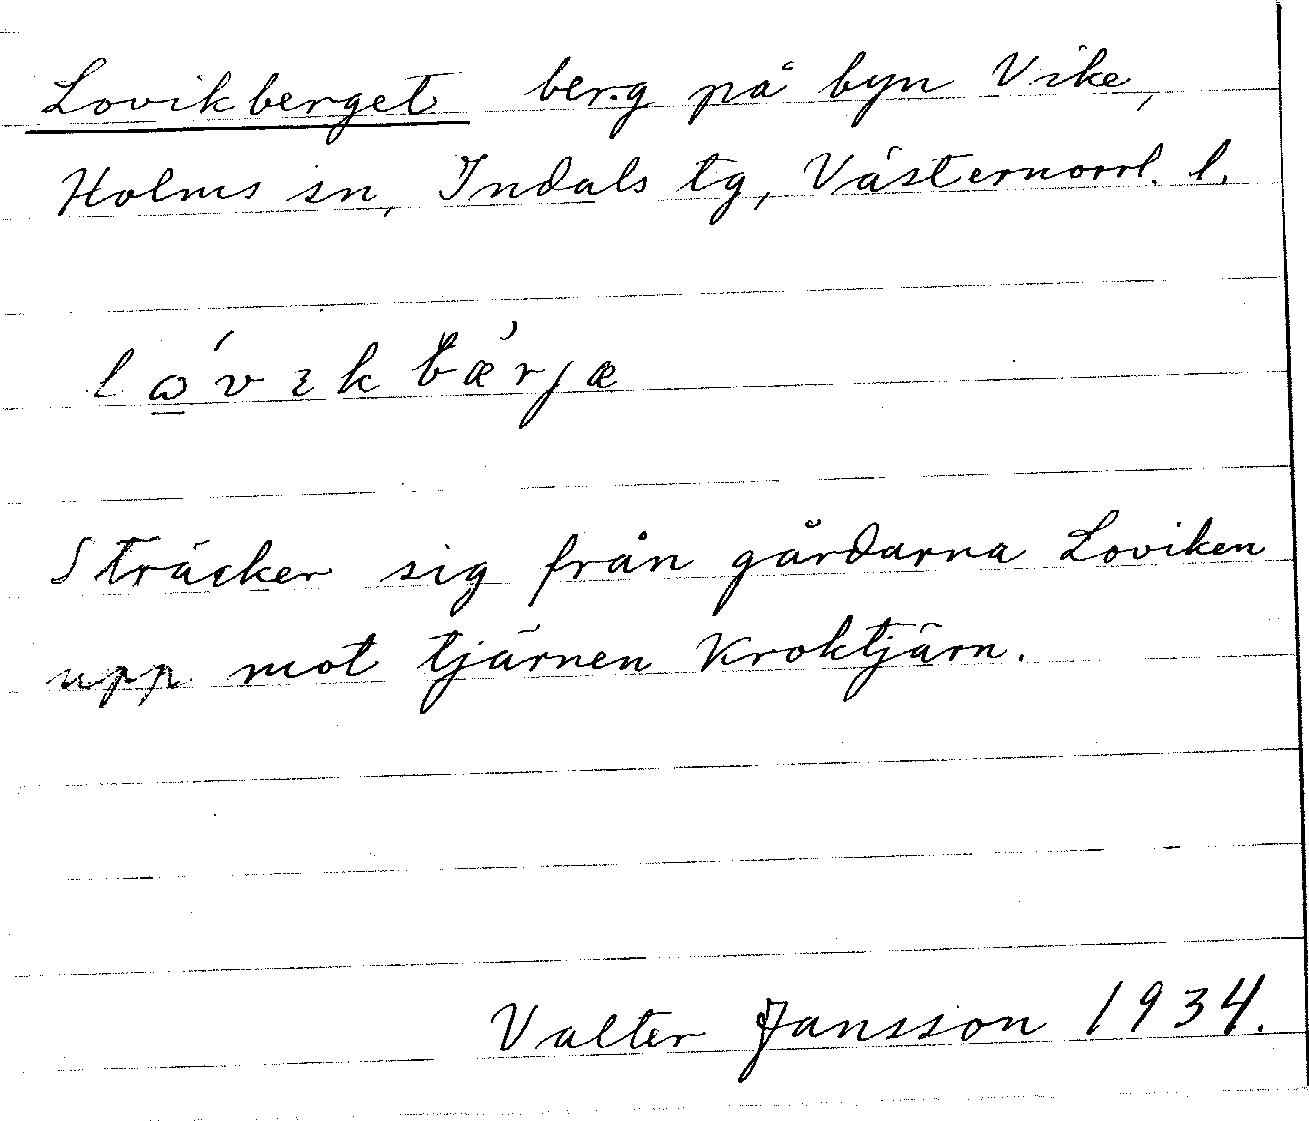 Lovikberget berg på byn Vike,
Holms sn, Indals tg, Västernorrl. l.
lώ̱vıkbæ̀rjæ
Sträcker sig från gårdarna Loviken
upp mot tjärnen Kroktjärn.
Valter Jansson 1934.